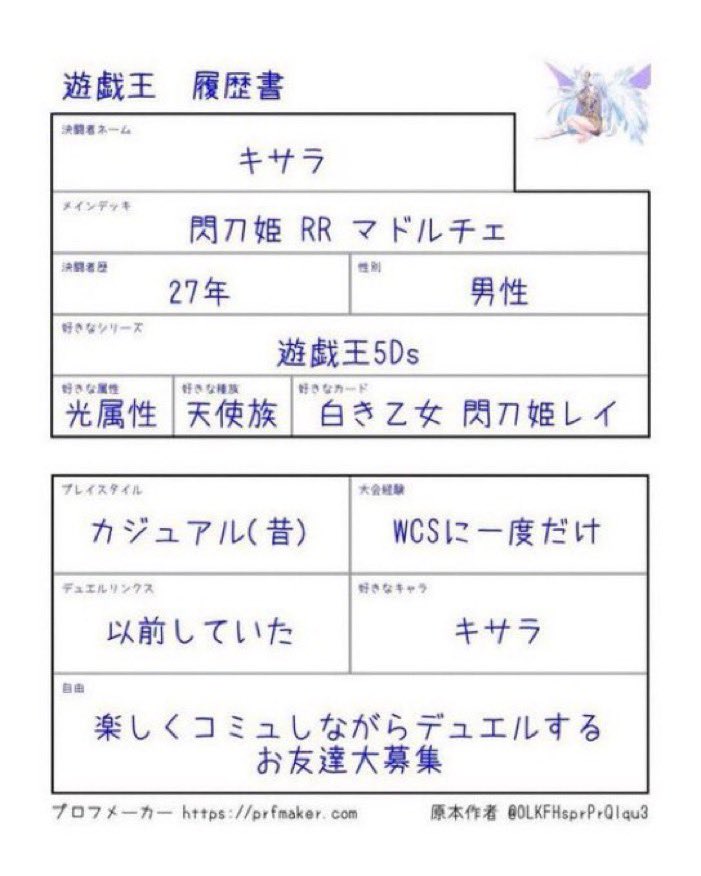 遊戯王　履歴書
決闘者ネーム
キサラ
メインデッキ
閃刀姫 RR マドルチェ
決闘者歴
27年
性別
男性
好きなシリーズ
遊戯王5Ds
好きな属性
光属性
好きな種族
天使族
好きなカード
白き乙女 閃刀姫レイ
プレイスタイル
カジュアル(昔)
大会経験
WCSに一度だけ
デュエルリンクス
以前していた
好きなキャラ
キサラ
自由
楽しくコミュしながらデュエルする
お友達大募集
プロフメーカー https://prfmaker.com
原本作者 @OLKFHsprPrQIqu3